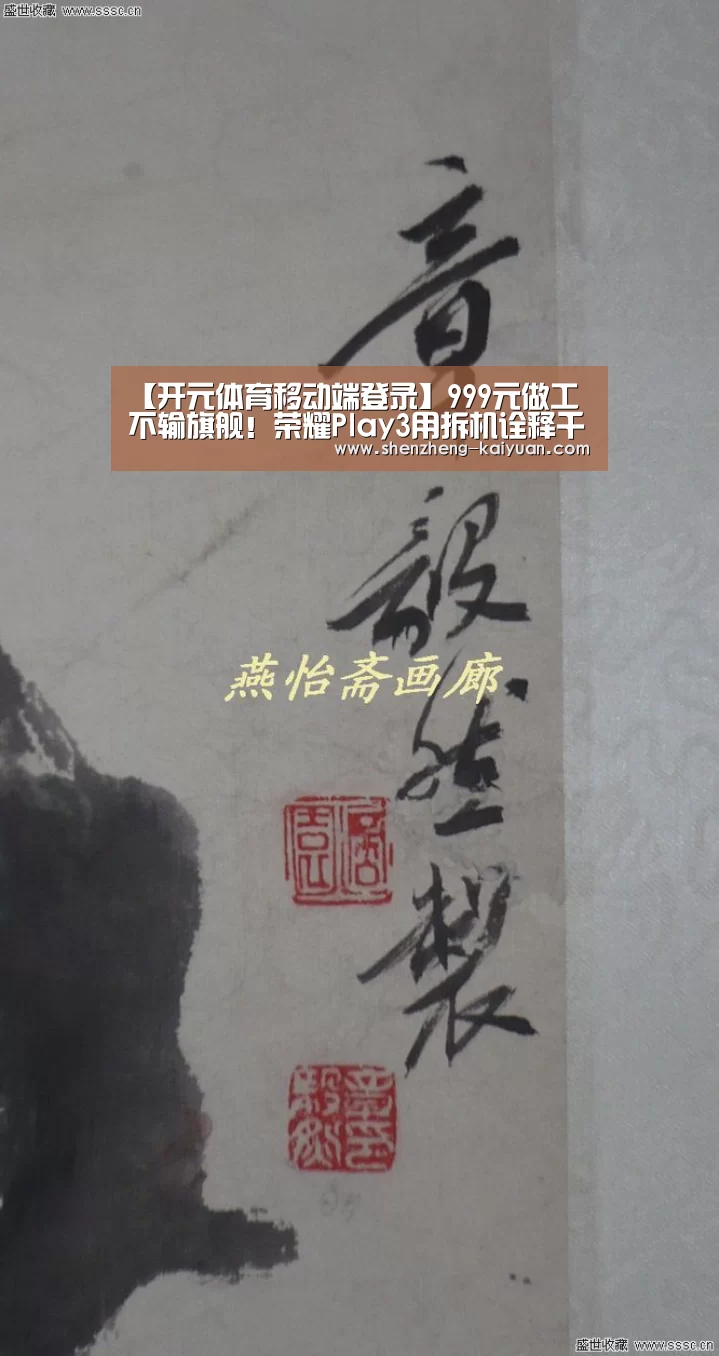 盛世收藏 www.sssc.cn
章
【开元体育移动端登录】999元做工
不输旗舰！荣耀Play3用拆机诠释千
www.shenzheng-kaiyuan.com
毅
燕怡斋画廊
然
製
章氏
毅然
盛世收藏 www.sssc.cn